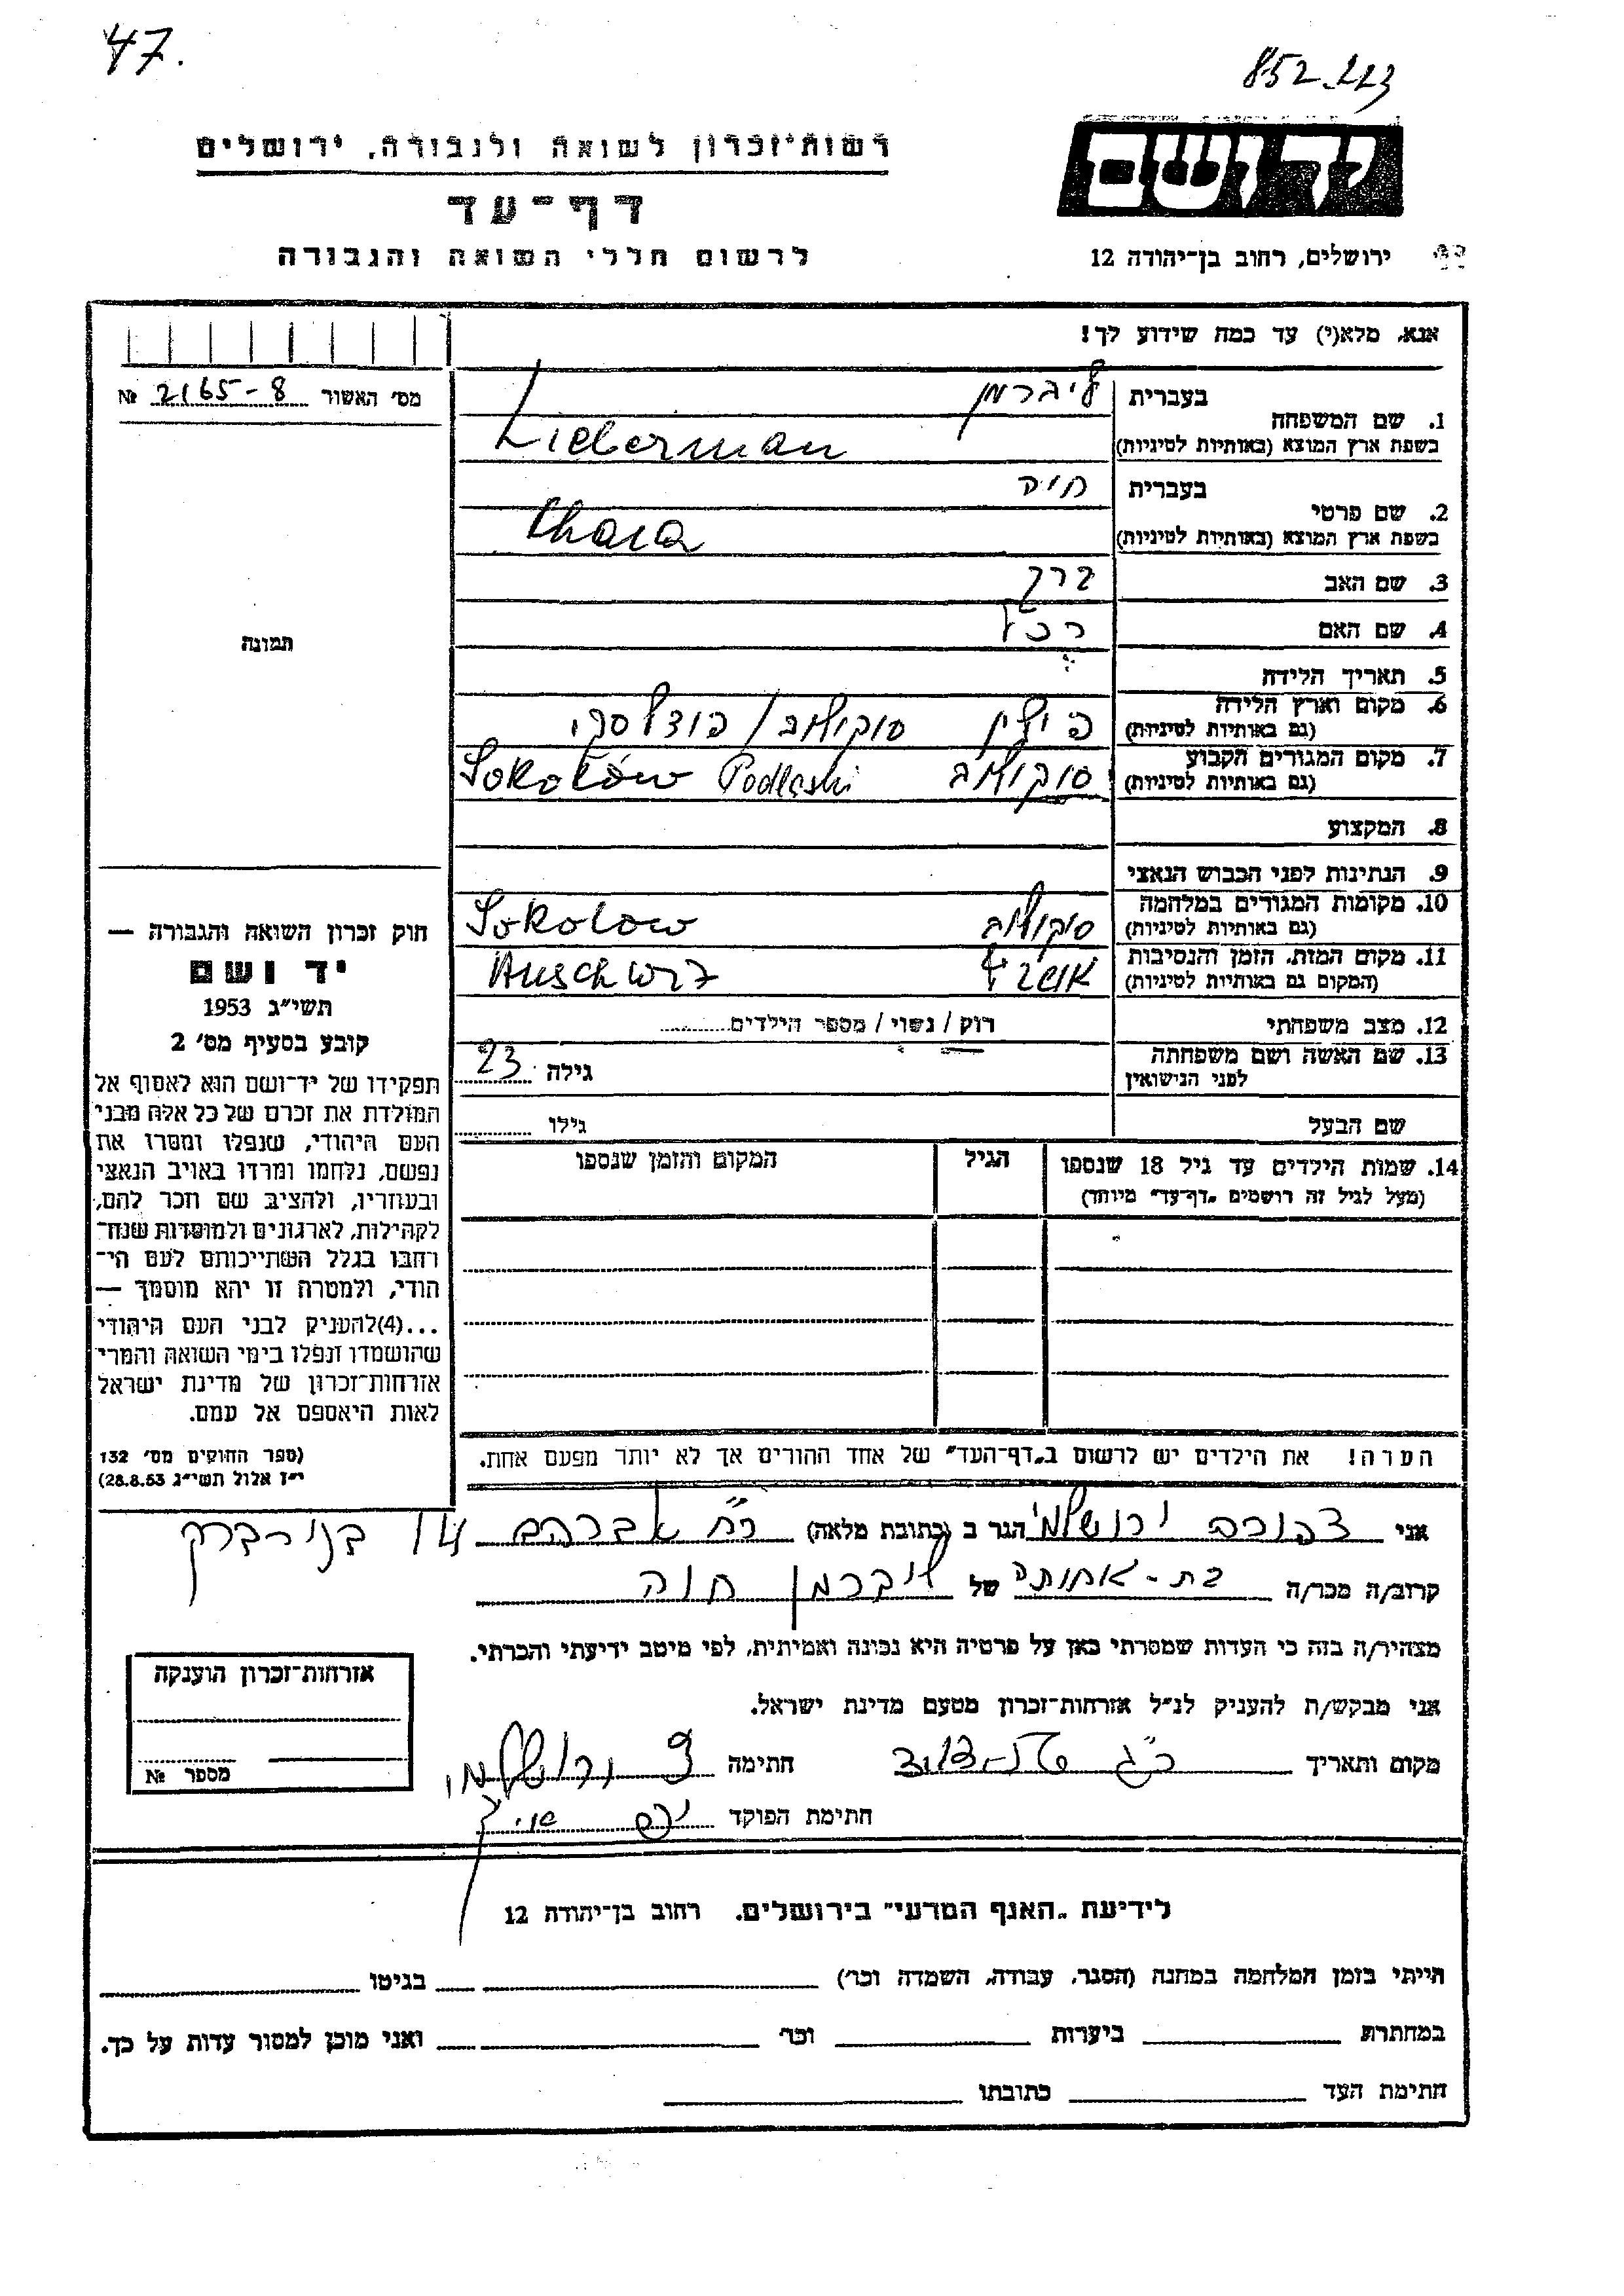 47.
852-223
רשות־זכרון לשואה ולגבורה, ירושלים
דף־עד
לרשום חללי השואה והגבורה
יד ושם
ירושלים, רחוב בן־יהודה 12
אנא, מלא(י) עד כמה שידוע לך!
מס׳ האשור 2165-8 №
תמונה
חוק זכרון השואה והגבורה —
יד ושם
תשי״ג 1953
קובע בסעיף מס׳ 2
תפקידו של יד־ושם הוא לאסוף אל
המולדת את זכרם של כל אלה מבני
העם היהודי, שנפלו ומסרו את
נפשם, נלחמו ומרדו באויב הנאצי
ובעוזריו, ולהציב שם וזכר להם,
לקהילות, לארגונים ולמוסדות שנח־
רבו בגלל השתייכותם לעם הי־
הודי, ולמטרה זו יהא מוסמך —
...(4)להעניק לבני העם היהודי
שהושמדו ונפלו בימי השואה והמרי
אזרחות־זכרון של מדינת ישראל
לאות היאספם אל עמם.
(ספר החוקים מס׳ 132
י״ז אלול תשי״ג 28.8.53)
1. שם המשפחה בעברית ליברמן
בשפת ארץ המוצא (באותיות לטיניות) Lieberman
2. שם פרטי בעברית חיה
בשפת ארץ המוצא (באותיות לטיניות) Chaia
3. שם האב ברך
4. שם האם רכל
5. תאריך הלידה
6. מקום וארץ הלידה (גם באותיות לטיניות) פולין סוקולוב/פודלסקי
7. מקום המגורים הקבוע (גם באותיות לטיניות) סוקולוב Sokołów Podlaski
8. המקצוע
9. הנתינות לפני הכבוש הנאצי
10. מקומות המגורים במלחמה (גם באותיות לטיניות) סוקולוב Sokolow
11. מקום המות, הזמן והנסיבות (המקום גם באותיות לטיניות) אושביץ Auschwrz
12. מצב משפחתי רוק / נשוי / מספר הילדים
13. שם האשה ושם משפחתה לפני הנישואין גילה 23
שם הבעל גילו
14. שמות הילדים עד גיל 18 שנספו הגיל המקום והזמן שנספו
(מעל לגיל זה רושמים „דף־עד״ מיוחד)
הערה! את הילדים יש לרשום ב„דף־העד״ של אחד ההורים אך לא יותר מפעם אחת.
אני צפורה ירושלמי הגר ב (כתובת מלאה) רח׳ אברהם 14 בני ברק
קרוב/ה מכר/ה בת-אחותה של ליברמן חוה
מצהיר/ה בזה כי העדות שמסרתי כאן על פרטיה היא נכונה ואמיתית, לפי מיטב ידיעתי והכרתי.
אני מבקש/ת להעניק לנ״ל אזרחות־זכרון מטעם מדינת ישראל.
מקום ותאריך חתימה צ ירושלמי
חתימת הפוקד
אזרחות־זכרון הוענקה
מספר №
לידיעת „האגף המדעי״ בירושלים. רחוב בן־יהודה 12
הייתי בזמן המלחמה במחנה (הסגר, עבודה, השמדה וכו׳) בגיטו
במחתרת ביערות וכו׳ ואני מוכן למסור עדות על כך.
חתימת העד כתובתו